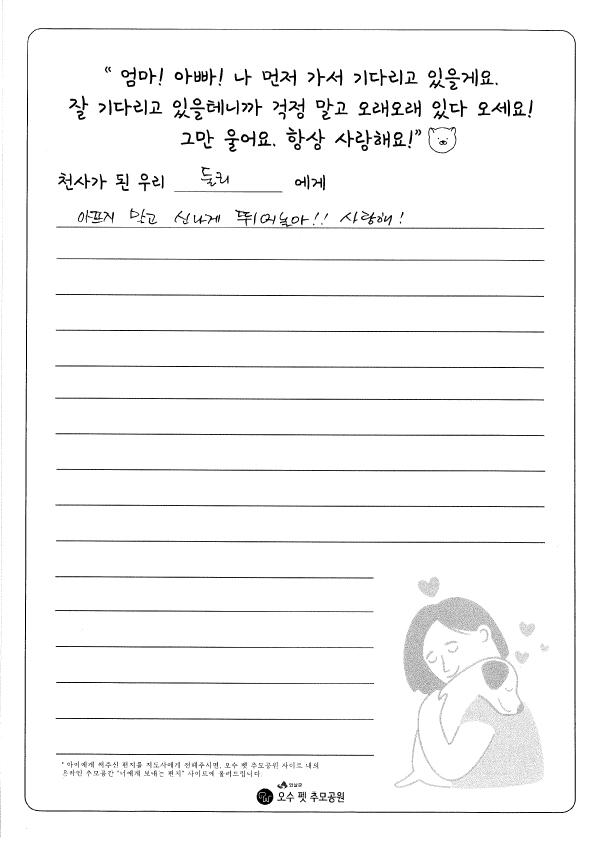 “ 엄마! 아빠! 나 먼저 가서 기다리고 있을게요.
잘 기다리고 있을테니까 걱정 말고 오래오래 있다 오세요!
그만 울어요. 항상 사랑해요!”
천사가 된 우리 둘리 에게
아프지 말고 신나게 뛰어놀아!! 사랑해!
* 아이에게 써주신 편지를 지도사에게 전해주시면, 오수 펫 추모공원 사이트 내의
온라인 추모공간 "너에게 보내는 편지" 사이트에 올려드립니다.
임실군
오수 펫 추모공원